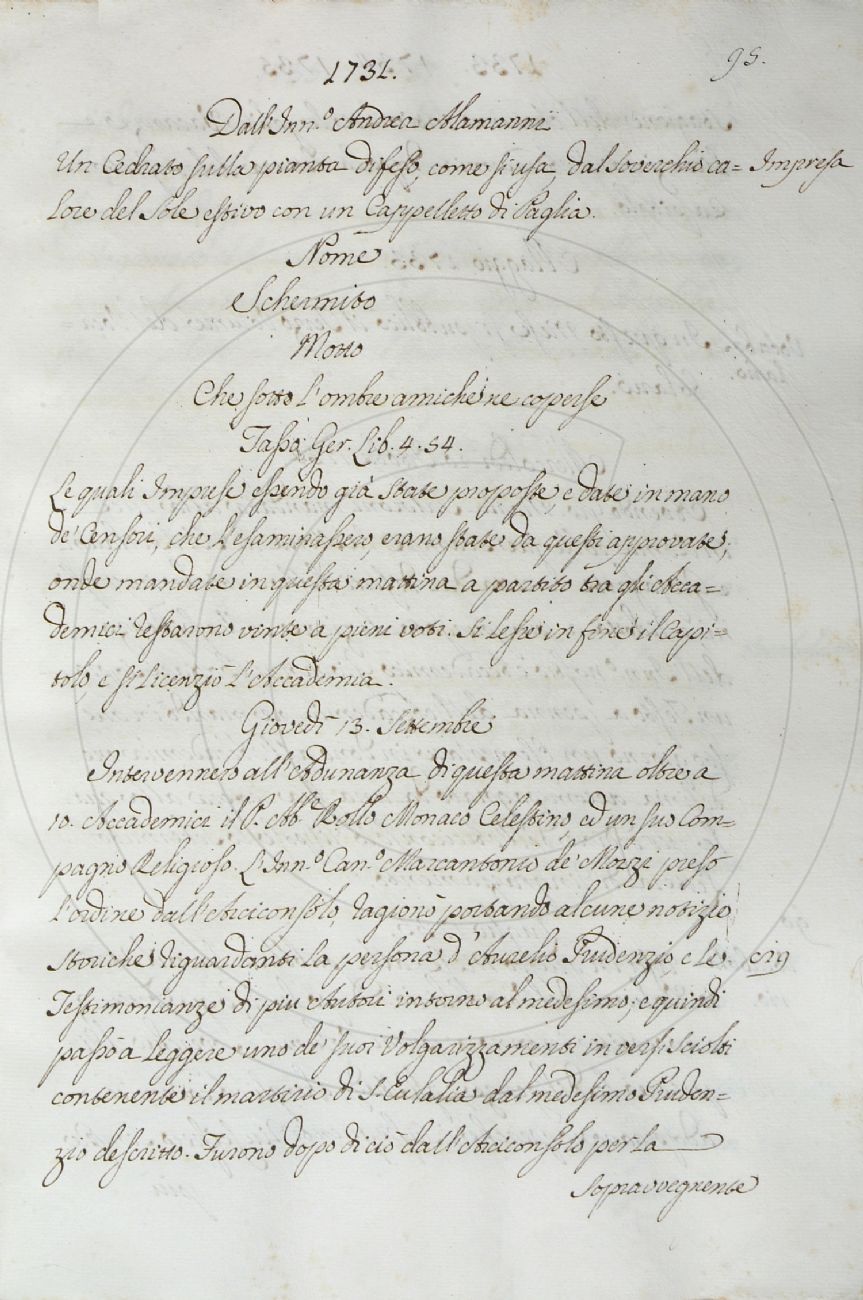 1731.
95.
Dall'Inn.º Andrea Alamanni
Un Cedrato sulla pianta difeso, come si usa, dal soverchio ca=
Impresa
lore del Sole estivo con un Cappelletto di Paglia.
Nome
Schermito
Motto
Che sotto l'ombre amiche ne coperse
Tasso Ger. Lib. 4. 54.
Le quali Imprese essendo già state proposte, e date in mano
de' Censori, che l'esaminassero, erano state da questi approvate;
onde mandate in questa mattina a partito tra gli Acca=
demici restarono vinte a pieni voti. Si lesse in fine il Capi=
tolo, e si licenziò l'Accademia.
Giovedì 13. Settembre
Intervennero all'Adunanza di questa mattina oltre a
10. Accademici il P. Abb.e Rollo Monaco Celestino, ed un suo Com=
pagno Religioso. L'Inn.º Can.º Marcantonio de' Mozzi preso
l'ordine dall'Arciconsolo, ragionò portando alcune notizie
storiche riguardanti la persona d'Aurelio Prudenzio, e le
Testimonianze di piu Autori intorno al medesimo; e quindi
passò a leggere uno de' suoi Volgarizzamenti in versi sciolti
contenente il martirio di S. Eulalia dal medesimo Pruden=
zio descritto. Furono dopo di ciò dall'Arciconsolo per la
sopravvegnente